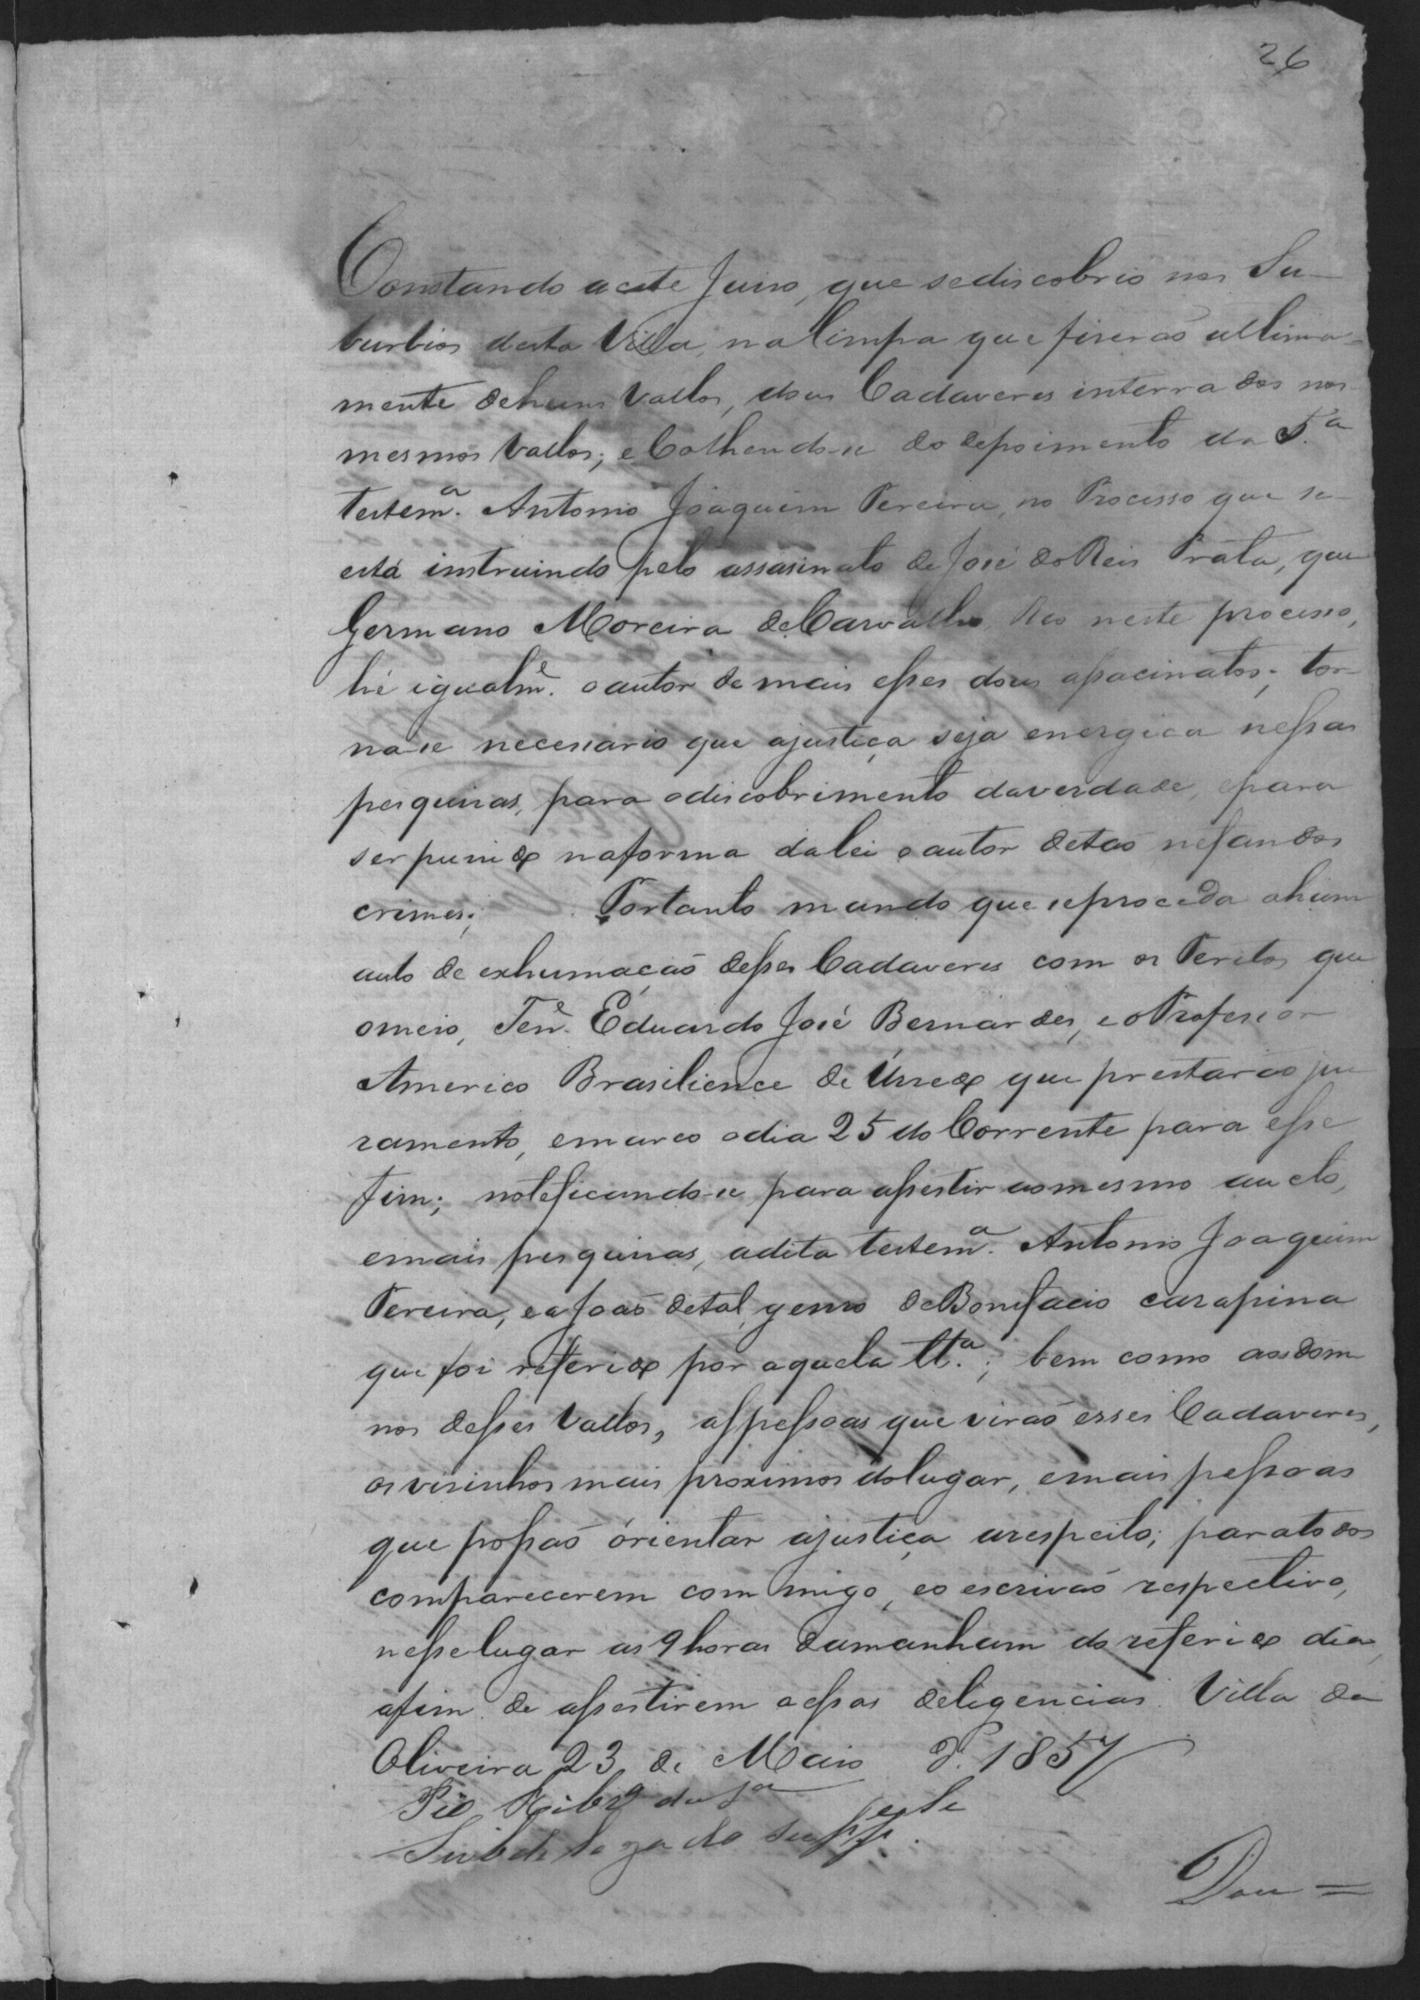 26
Constando a este Juiso, que se discobrio nos Su-
burbios desta Villa, na limpa que fiserão ultima-
mente de huns Vallos, dous Cadaveres interrados nos
mesmos Vallos; e Colhendo-se do depoimento da 5.ª
testemª. Antonio Joaquim Pereira, no Processo que se
está instruindo pelo assasinato de José do Reis Prata, que
Germano Moreira de Carvalho, Reo neste processo,
hé igualmᵉ. o autor de mais esses dous assacinatos; tor-
na-se necessario que a justiça seja energica nessas
pesquisas, para o discobrimento da verdade, e para
ser punido na forma da lei o autor de tão nefandos
crimes; Portanto mando que se proceda a hum
auto de exhumação desses Cadaveres com os Peritos que
omeio, Tenᵉ. Eduardo José Bernardes, e o Professor
Americo Brasiliense de que prestarão ju
ramento, e marco o dia 25 do Corrente para esse
fim; noteficando-se para assestir ao mesmo aucto,
e mais pesquisas, a dita testemª. Antonio Joaquim
Pereira, e a João de tal, genro de Bonifacio carapina
que foi referido por aquela ttª.; bem como aos dom
nos desses Vallos, as pessoas que virão esses Cadaveres,
os visinhos mais proximos do lugar, e mais pessoas
que possão órientar a justiça a respeito; para todos
comparecerem com migo, e o escrivão respectivo,
nesse lugar as 9 horas da manham do referido dia,
afim de assestirem a essas deligencias. Villa de
Oliveira 23 de Maio d. 1857
Pio Ribrº da Sª
Subdelegado suppᵉⁿᵗᵉ.
Dou =